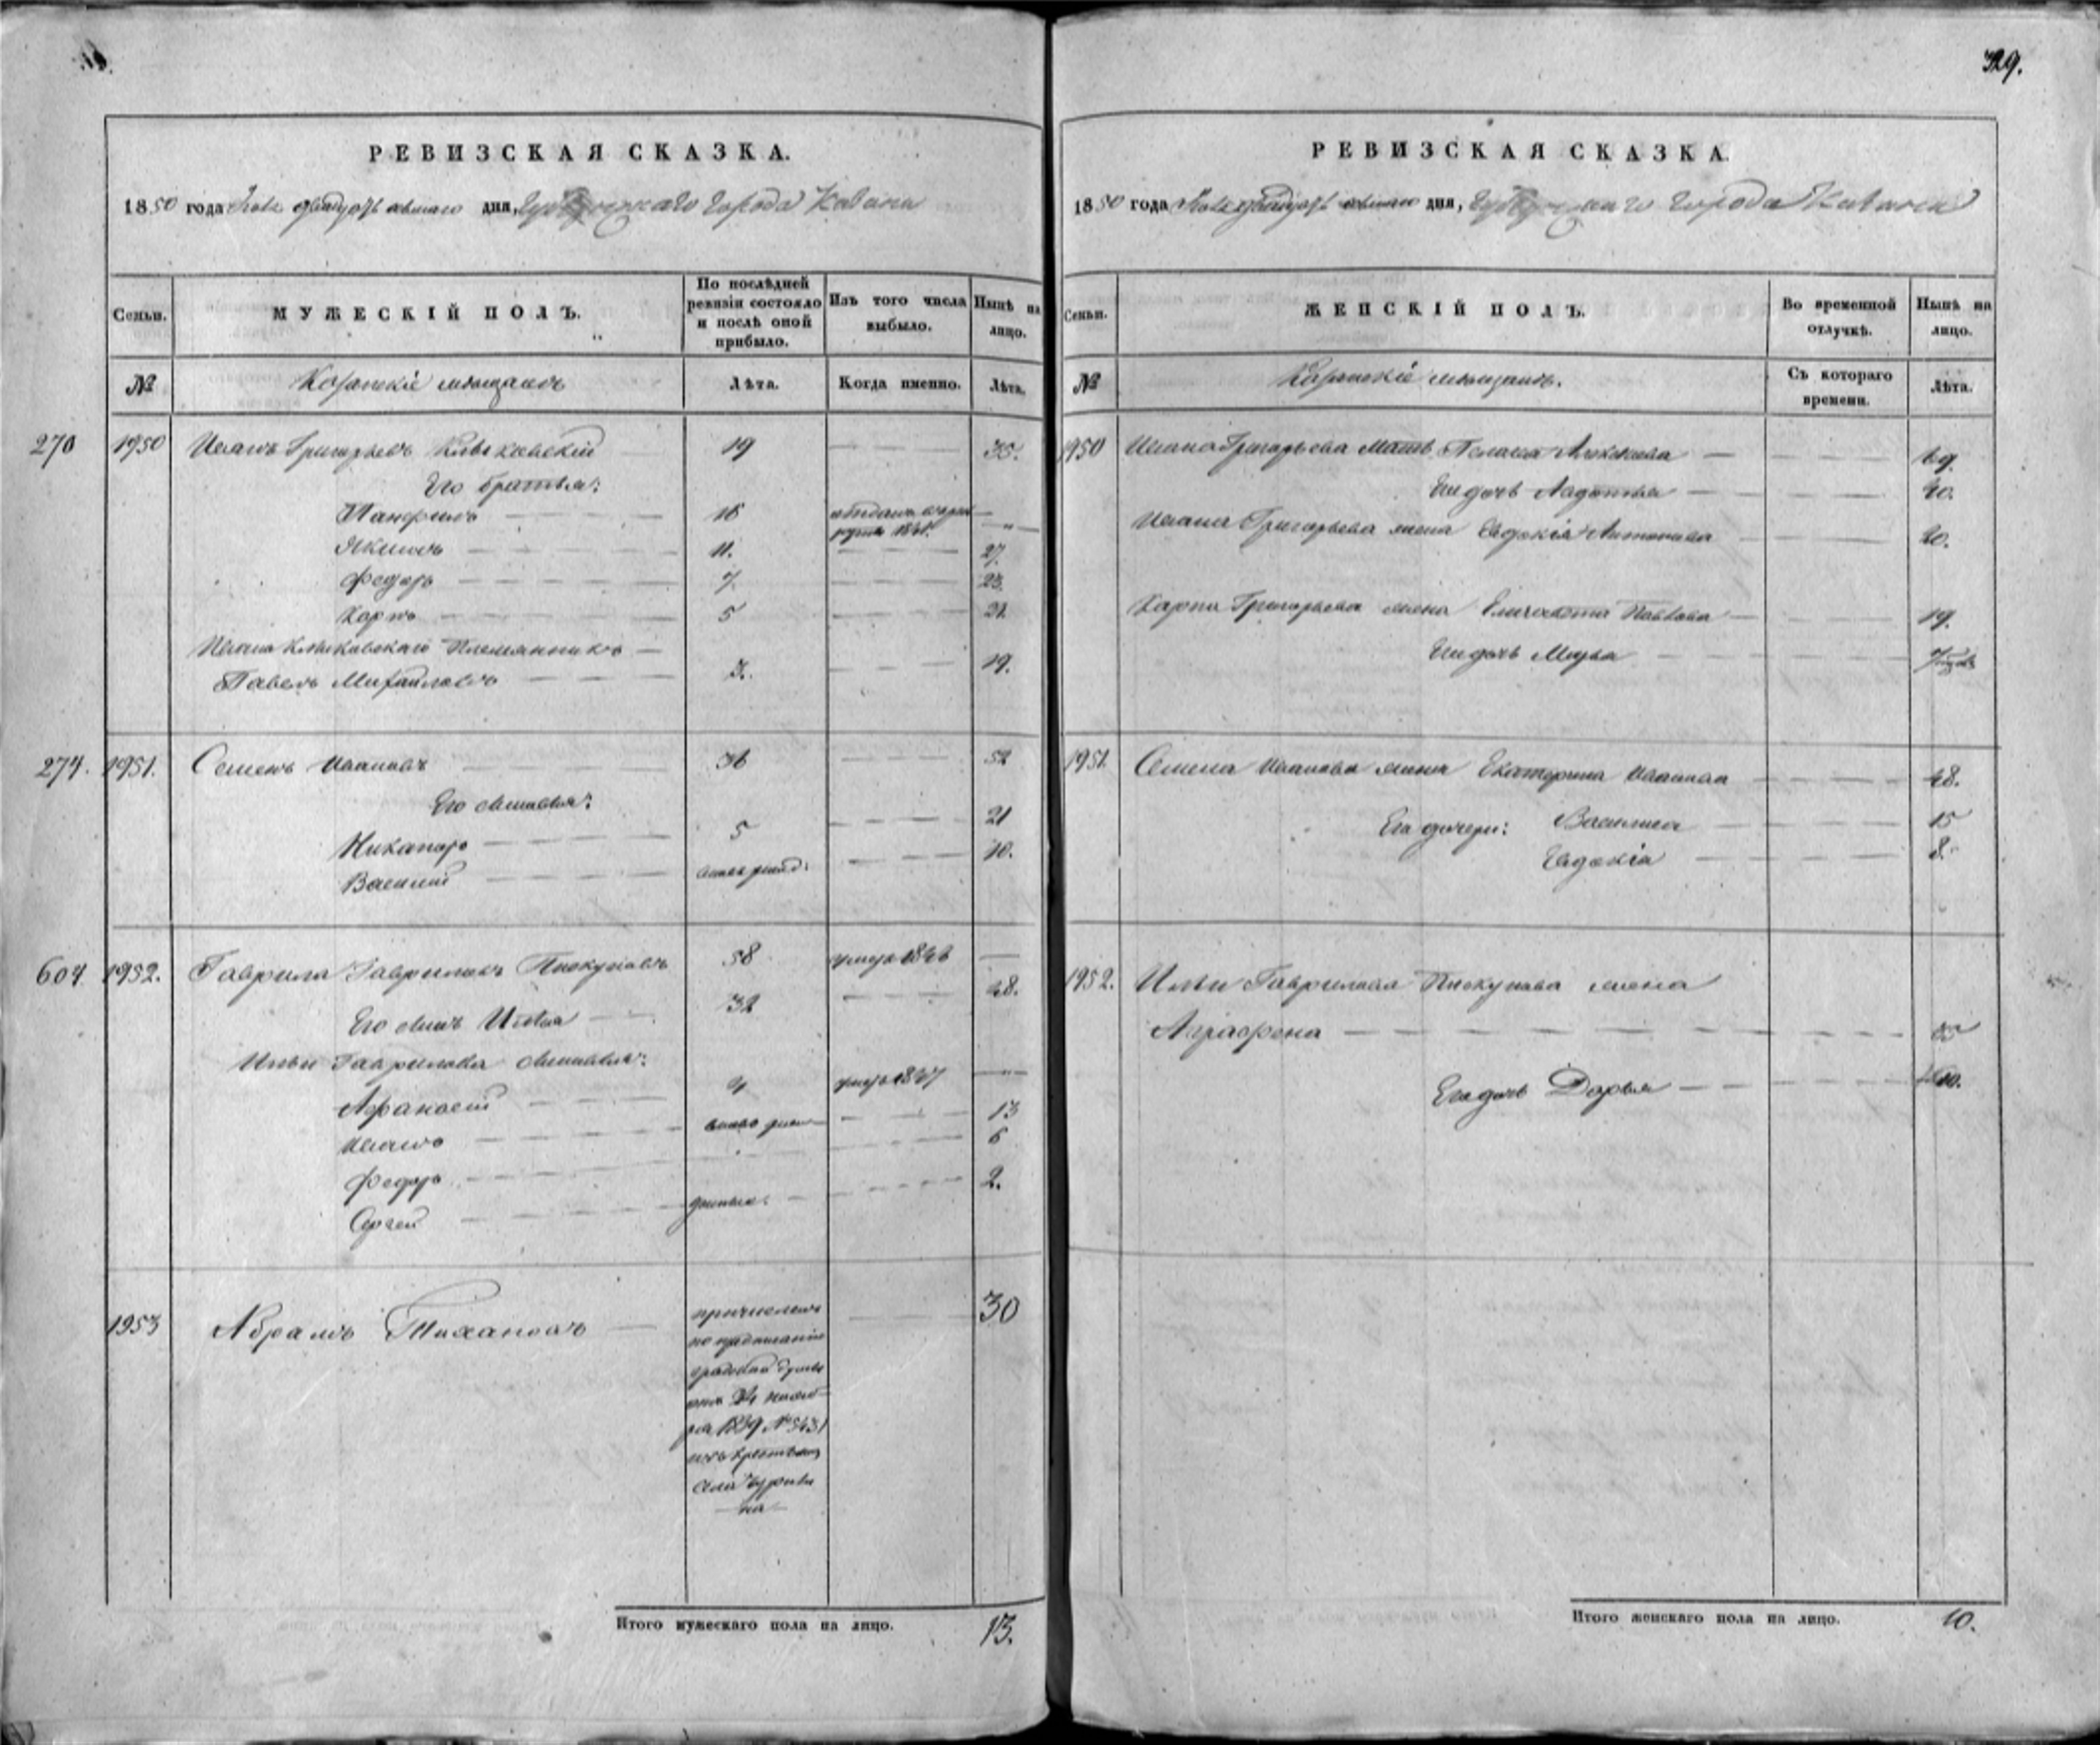 329.
РЕВИЗСКАЯ СКАЗКА.
1850 года дня, города Казани
Семьи. МУЖЕСКІЙ ПОЛЪ. По послѣдней ревизіи состояло и послѣ оной прибыло. Изъ того числа выбыло. Нынѣ на лицо.
№ Казанскіе мѣщане Лѣта. Когда именно. Лѣта.
270 1950 Иванъ Григорьевъ 19 35.
Его братья:
Панфилъ 16
Якимъ 11. 27.
Федоръ 7. 23.
Карпъ 5 21.
Ивана Племянникъ
Павелъ Михайловъ 3. 19.
274. 1951. Семенъ Ивановъ 36 52
Его сыновья:
Никаноръ 5 21
Василий 10.
604 1952. Гаврила Гавриловъ Пискуновъ 58 умеръ 1846
Его сынъ Илья 32 48.
Ильи Гаврилова сыновья:
Афанасий 4 умеръ 1847
Иванъ 13
Федоръ 6
Сергей 2.
1953 Абрамъ Тихановъ причисленъ 30
по предписанію
градской думы
от 24 нояб-
ря 1839 № 5431
изъ крестьян
села
на
Итого мужескаго пола на лицо. 13.
РЕВИЗСКАЯ СКАЗКА.
1850 года дня, города Казани
Семьи. ЖЕНСКІЙ ПОЛЪ. Во временной отлучкѣ. Нынѣ на лицо.
№ Казанскіе мѣщане. Съ котораго времени. Лѣта.
1950 Ивана Григорьева мать
Ея дочь 40.
Ивана Григорьева жена Евдокія Антонова 20.
Карпа Григорьева жена Елизавета Павлова 19.
Ея дочь Марья
1951. Семена Иванова жена Екатерина Иванова 48.
Его дочери: Василиса 15
Евдокія 8.
1952. Ильи Гаврилова Пискунова жена
Аграфена
Его дочь Дарья 10.
Итого женскаго пола на лицо. 10.